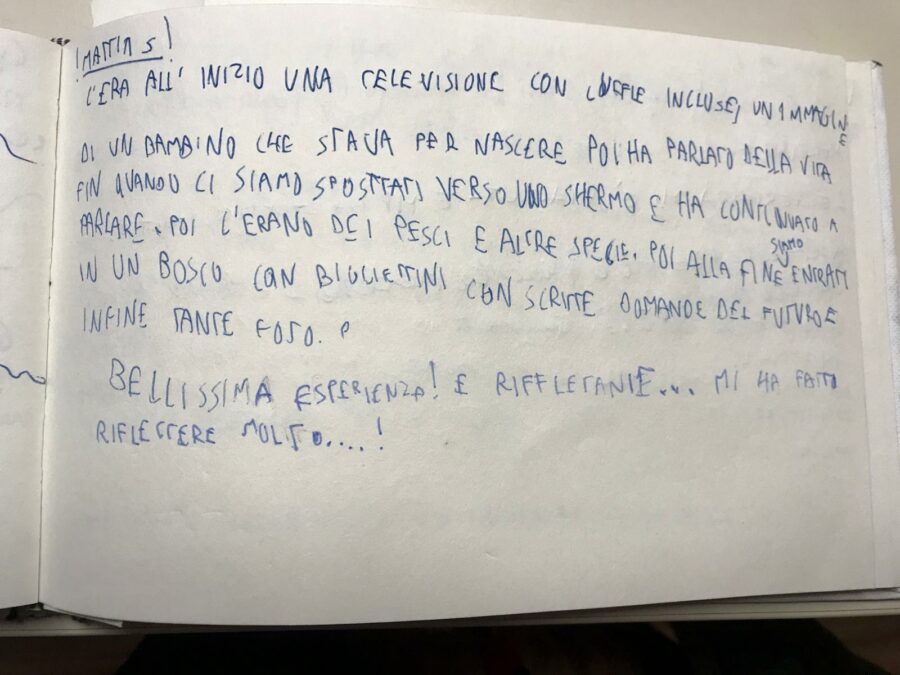 !MATTIA S!
C'ERA ALL' INIZIO UNA TELEVISIONE CON CUFFIE INCLUSE, UN IMMAGINE
DI UN BAMBINO CHE STAVA PER NASCERE POI HA PARLATO DELLA VITA
FIN QUANDO CI SIAMO SPOSTTATI VERSO UNO SHERMO E HA CONTINUATO A
PARLARE. POI C'ERANO DEI PESCI E ALTRE SPECIE. POI ALLA FINE siamo ENTRATI
IN UN BOSCO CON BIGLIETTINI CON SCRITTE DOMANDE DEL FUTURO E
INFINE TANTE FOTO.
BELLISSIMA ESPERIENZA! E RIFFLETANTE... MI HA FATTO
RIFLETTERE MOLTO....!